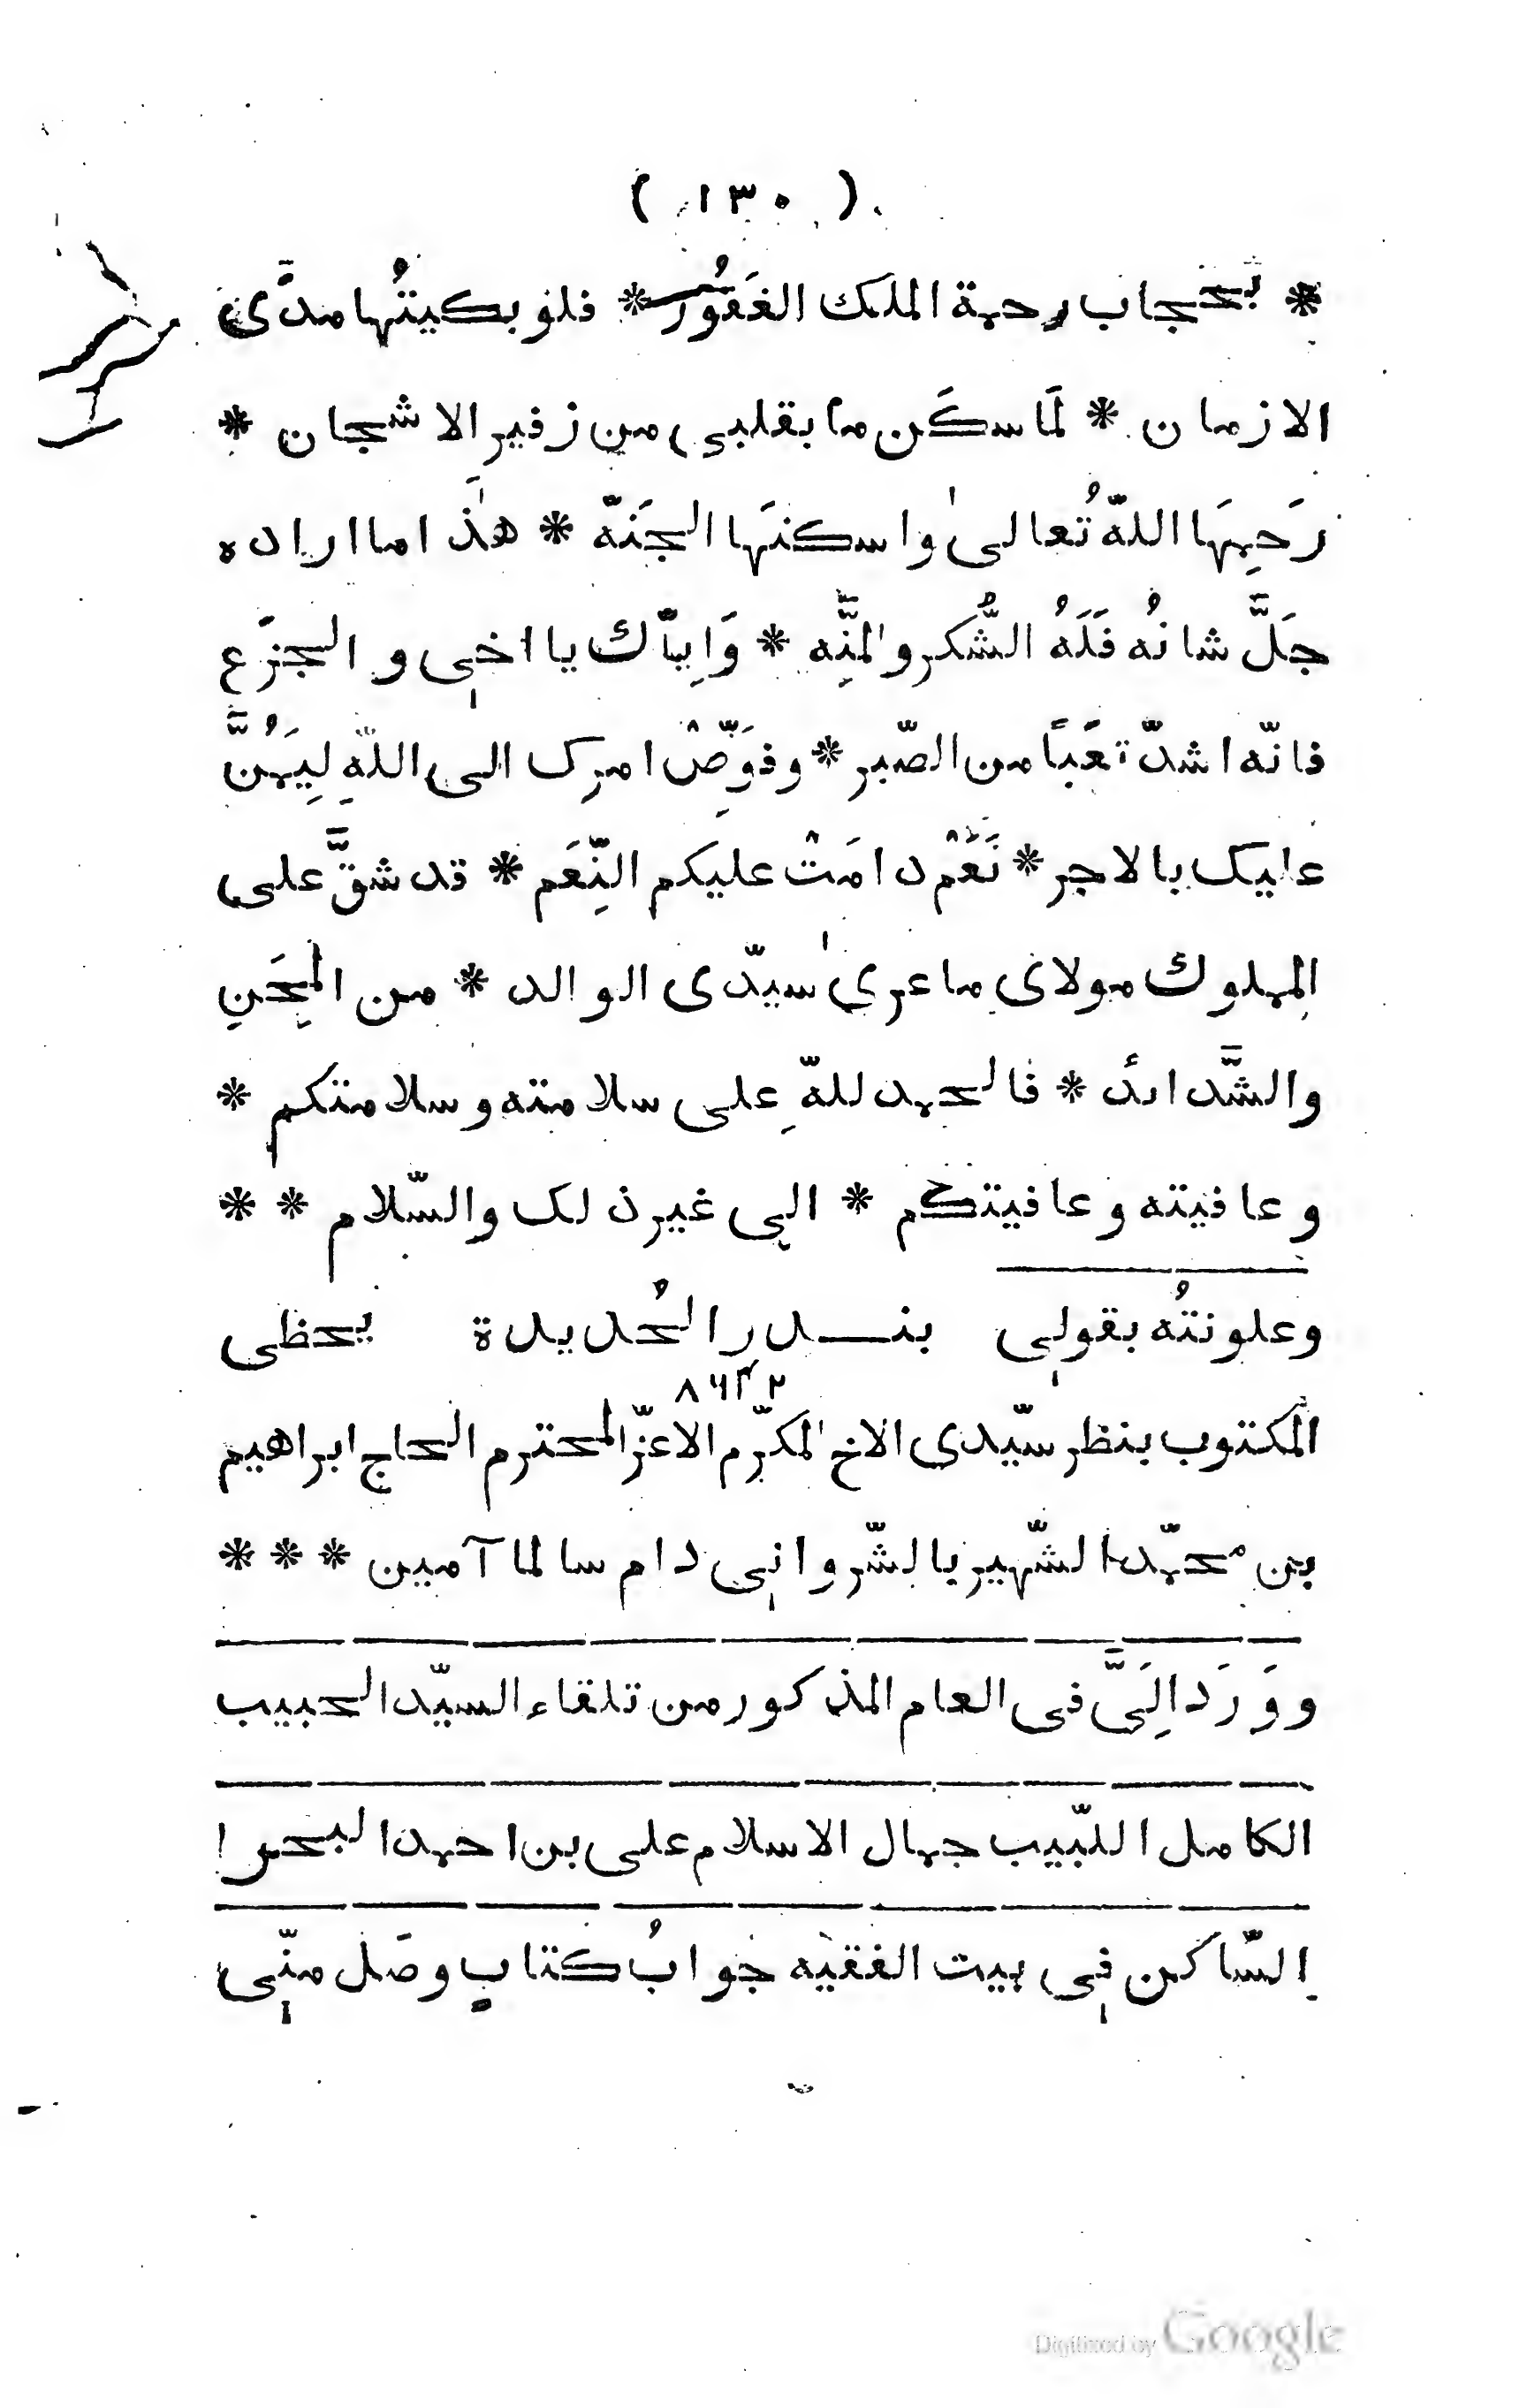 ( ١٣٠ )
* بحجاب رحمة الملك الغَفُور * فلو بكيتُها مدَّى
الازمان * لَمَا سكَن ما بقلبى من زفير الاشجان *
رَحِمَهَا اللّهُ تعالىٰ واسكنَها الجَنّة * هٰذا ما اراده
جَلَّ شانُه فَلَهُ الشُّكر والمنِّه * وَاِيّاك يا اخى والجزَع
فانّه اشدّ تعَبًا من الصّبر * وفوِّضْ امرك الى اللّهِ لِيَمُنَّ
عليك بالاجر * نَعَمْ دامَتْ عليكم النِّعَم * قد شقَّ على
المملوك مولاى ما عرىٰ سيّدى الوالد * من المِحَنِ
والشَّدائد * فالحمد للّهِ على سلامته وسلامتكم *
وعافيته وعافيتكم * الى غير ذلك والسّلام * *
وعلونتُه بقولى بنـــدر الحُديدة يحظى
٨٦٤٢
المكتوب بنظر سيّدى الاخ المكرّم الاعزّ المحترم الحاج ابراهيم
بن محمّد الشّهير بالشّروانى دام سالما آمين * * *
ووَرَد اِلَىَّ فى العام المذكور من تلقاء السيّد الحبيب
الكامل اللّبيب جمال الاسلام على بن احمد البحر ا
السّاكن فى بيت الفقيه جوابُ كتابٍ وصَل منّى
Digitized by Google